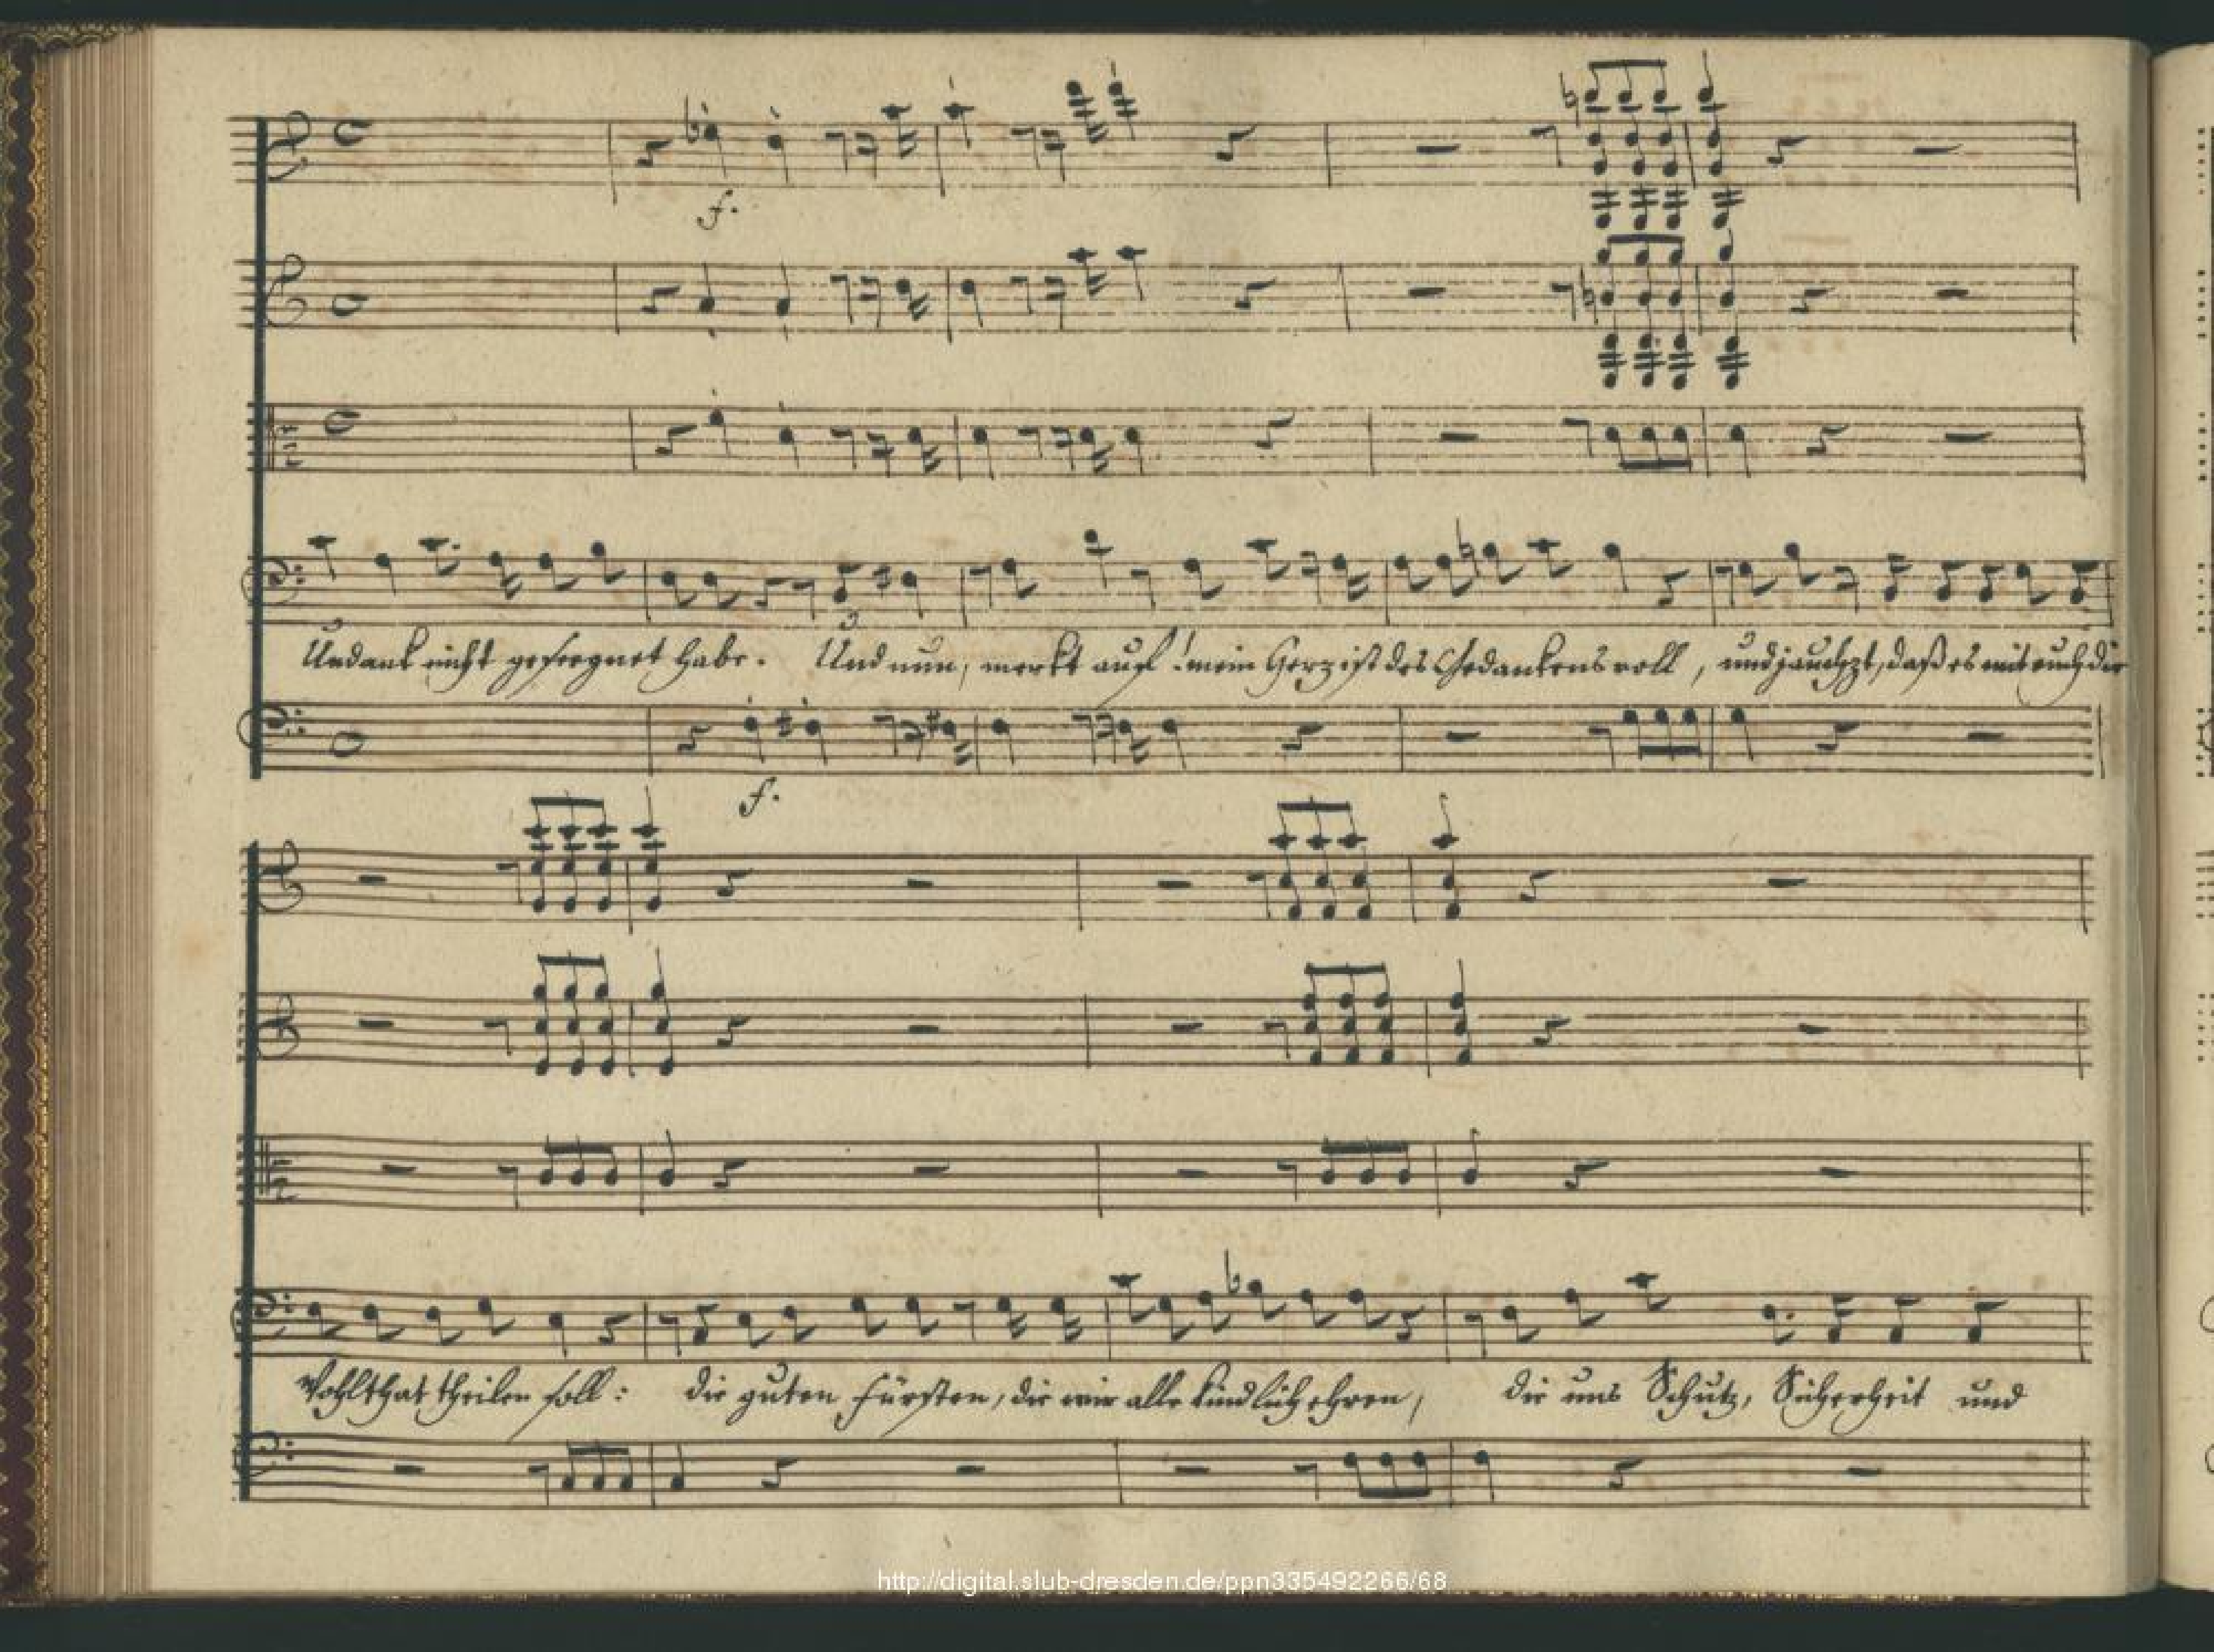 f.
Undank nicht gesegnet habe. Und nun, merkt auf! mein Herz ist des Gedankens voll, und jauchzt, daß es mit euch die
f.
Wohlthat theilen soll: die guten Fürsten, die wir alle kindlich ehren, die uns Schutz, Sicherheit und
http://digital.slub-dresden.de/ppn335492266/68